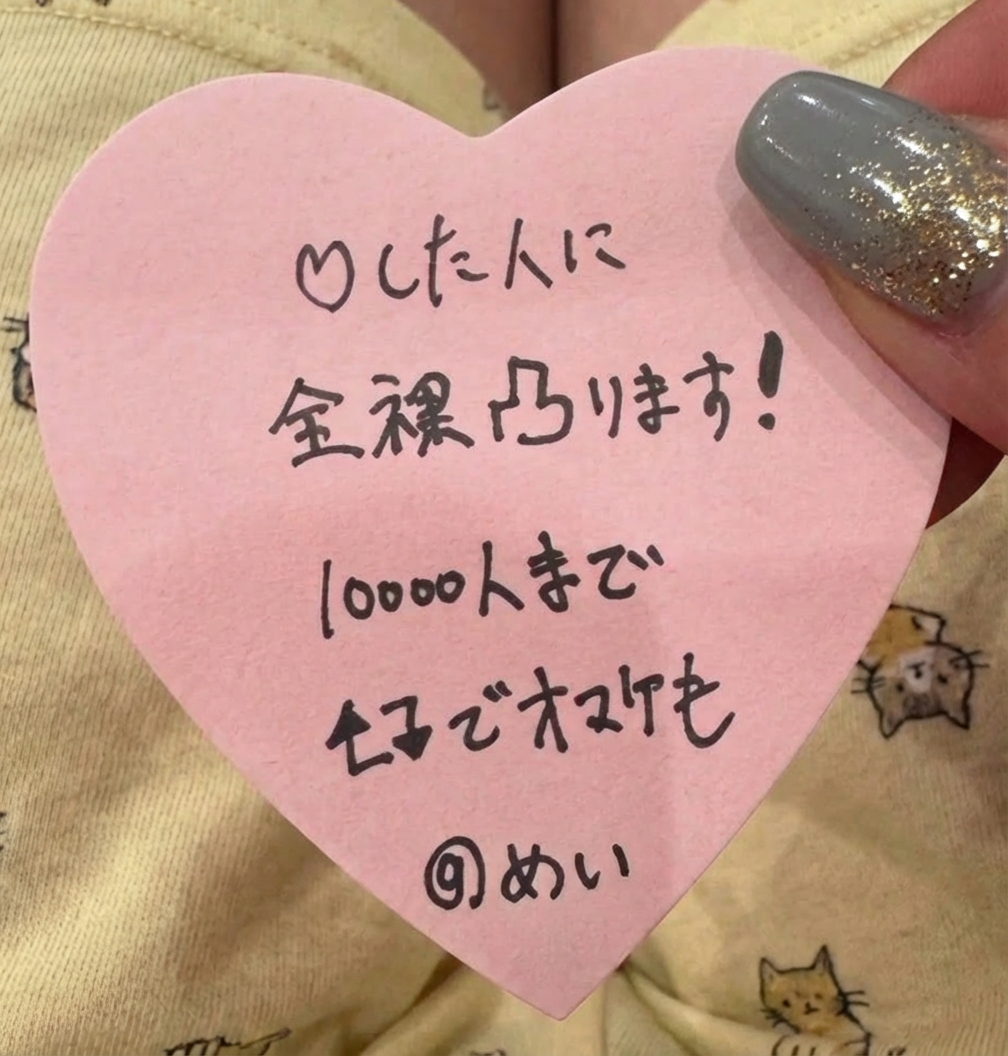 ♡した人に
全裸凸ります!
10000人まで
でオマケも
@めい